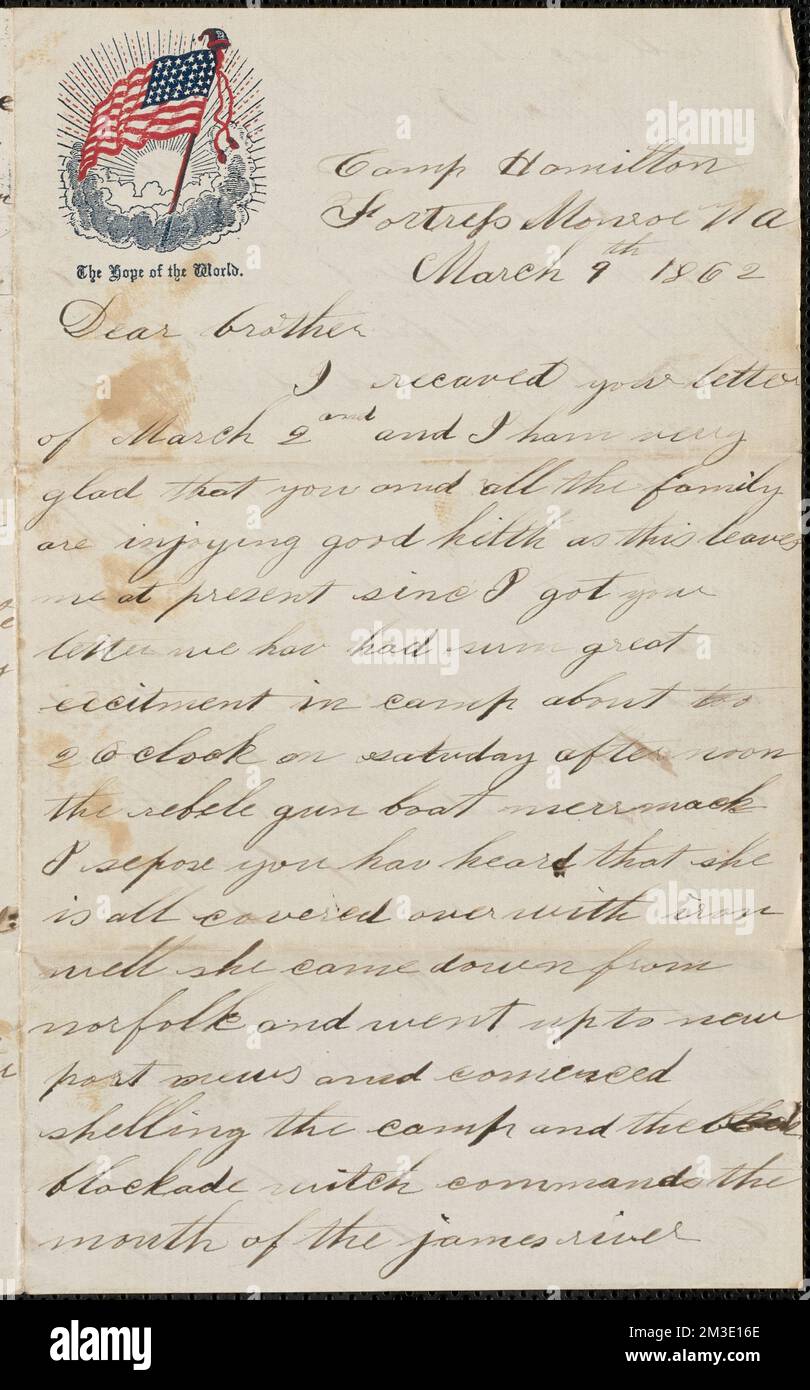 The Hope of the World.
Camp Hamilton
Fortress Monroe Va
March 9th 1862
Dear brother
I recaved your letter
of March 2and and I ham very
glad that you and all the family
are injoying good hilth as this leaves
me at present sinc I got your
letter we hav had sum great
excitment in camp about too
2 O clock on saturday afternoon
the rebele gun boat merrmack
I sepose you hav heard that she
is all covered over with iron
well she came down from
norfolk and went up to new
port news and comenced
shelling the camp and the
blockade witch commands the
mouth of the james river
alamy
Image ID: 2M3E16E
www.alamy.com